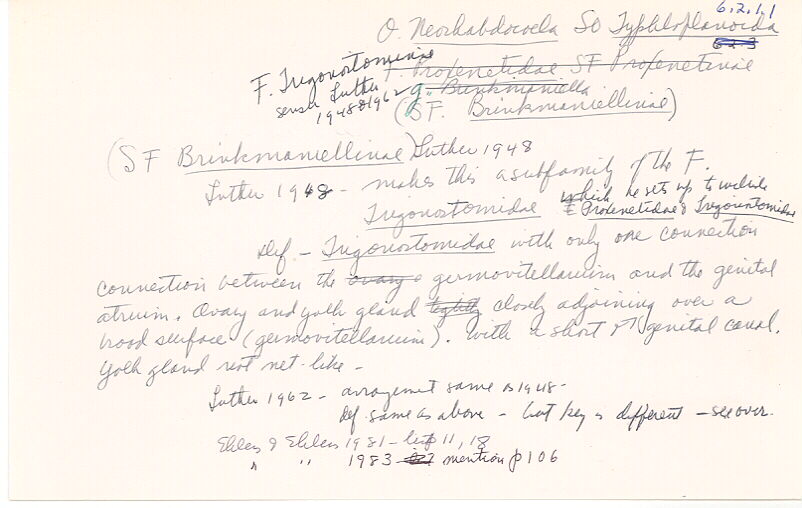 6.2.1.1
O. Neorhabdocoela SO Typhloplanoida
6.2.3
F. Trigonostominae F. Proxenetidae SF Proxenetinae
sensu Luther g. Brinkmaniella
1948&1962 (SF. Brinkmaniellinae)
(SF Brinkmaniellinae) Luther 1948
Luther 1948 - makes this a subfamily of the F.
Trigonostomidae which he sets up to include
Proxenetidae & Trigonostomidae
Def. - Trigonostomidae with only one connection
connection between the ovary germovitellarium and the genital
atrium. Ovary and yolk gland tightly closely adjoining over a
broad surface (germovitellarium). With a short ♂ genital canal.
Yolk gland not net-like -
Luther 1962 - arrangement same as 1948 -
Def. same as above - but key is different - see over.
Ehlers & Ehlers 1981 - list p 11, 18
" " 1983 mention p 106